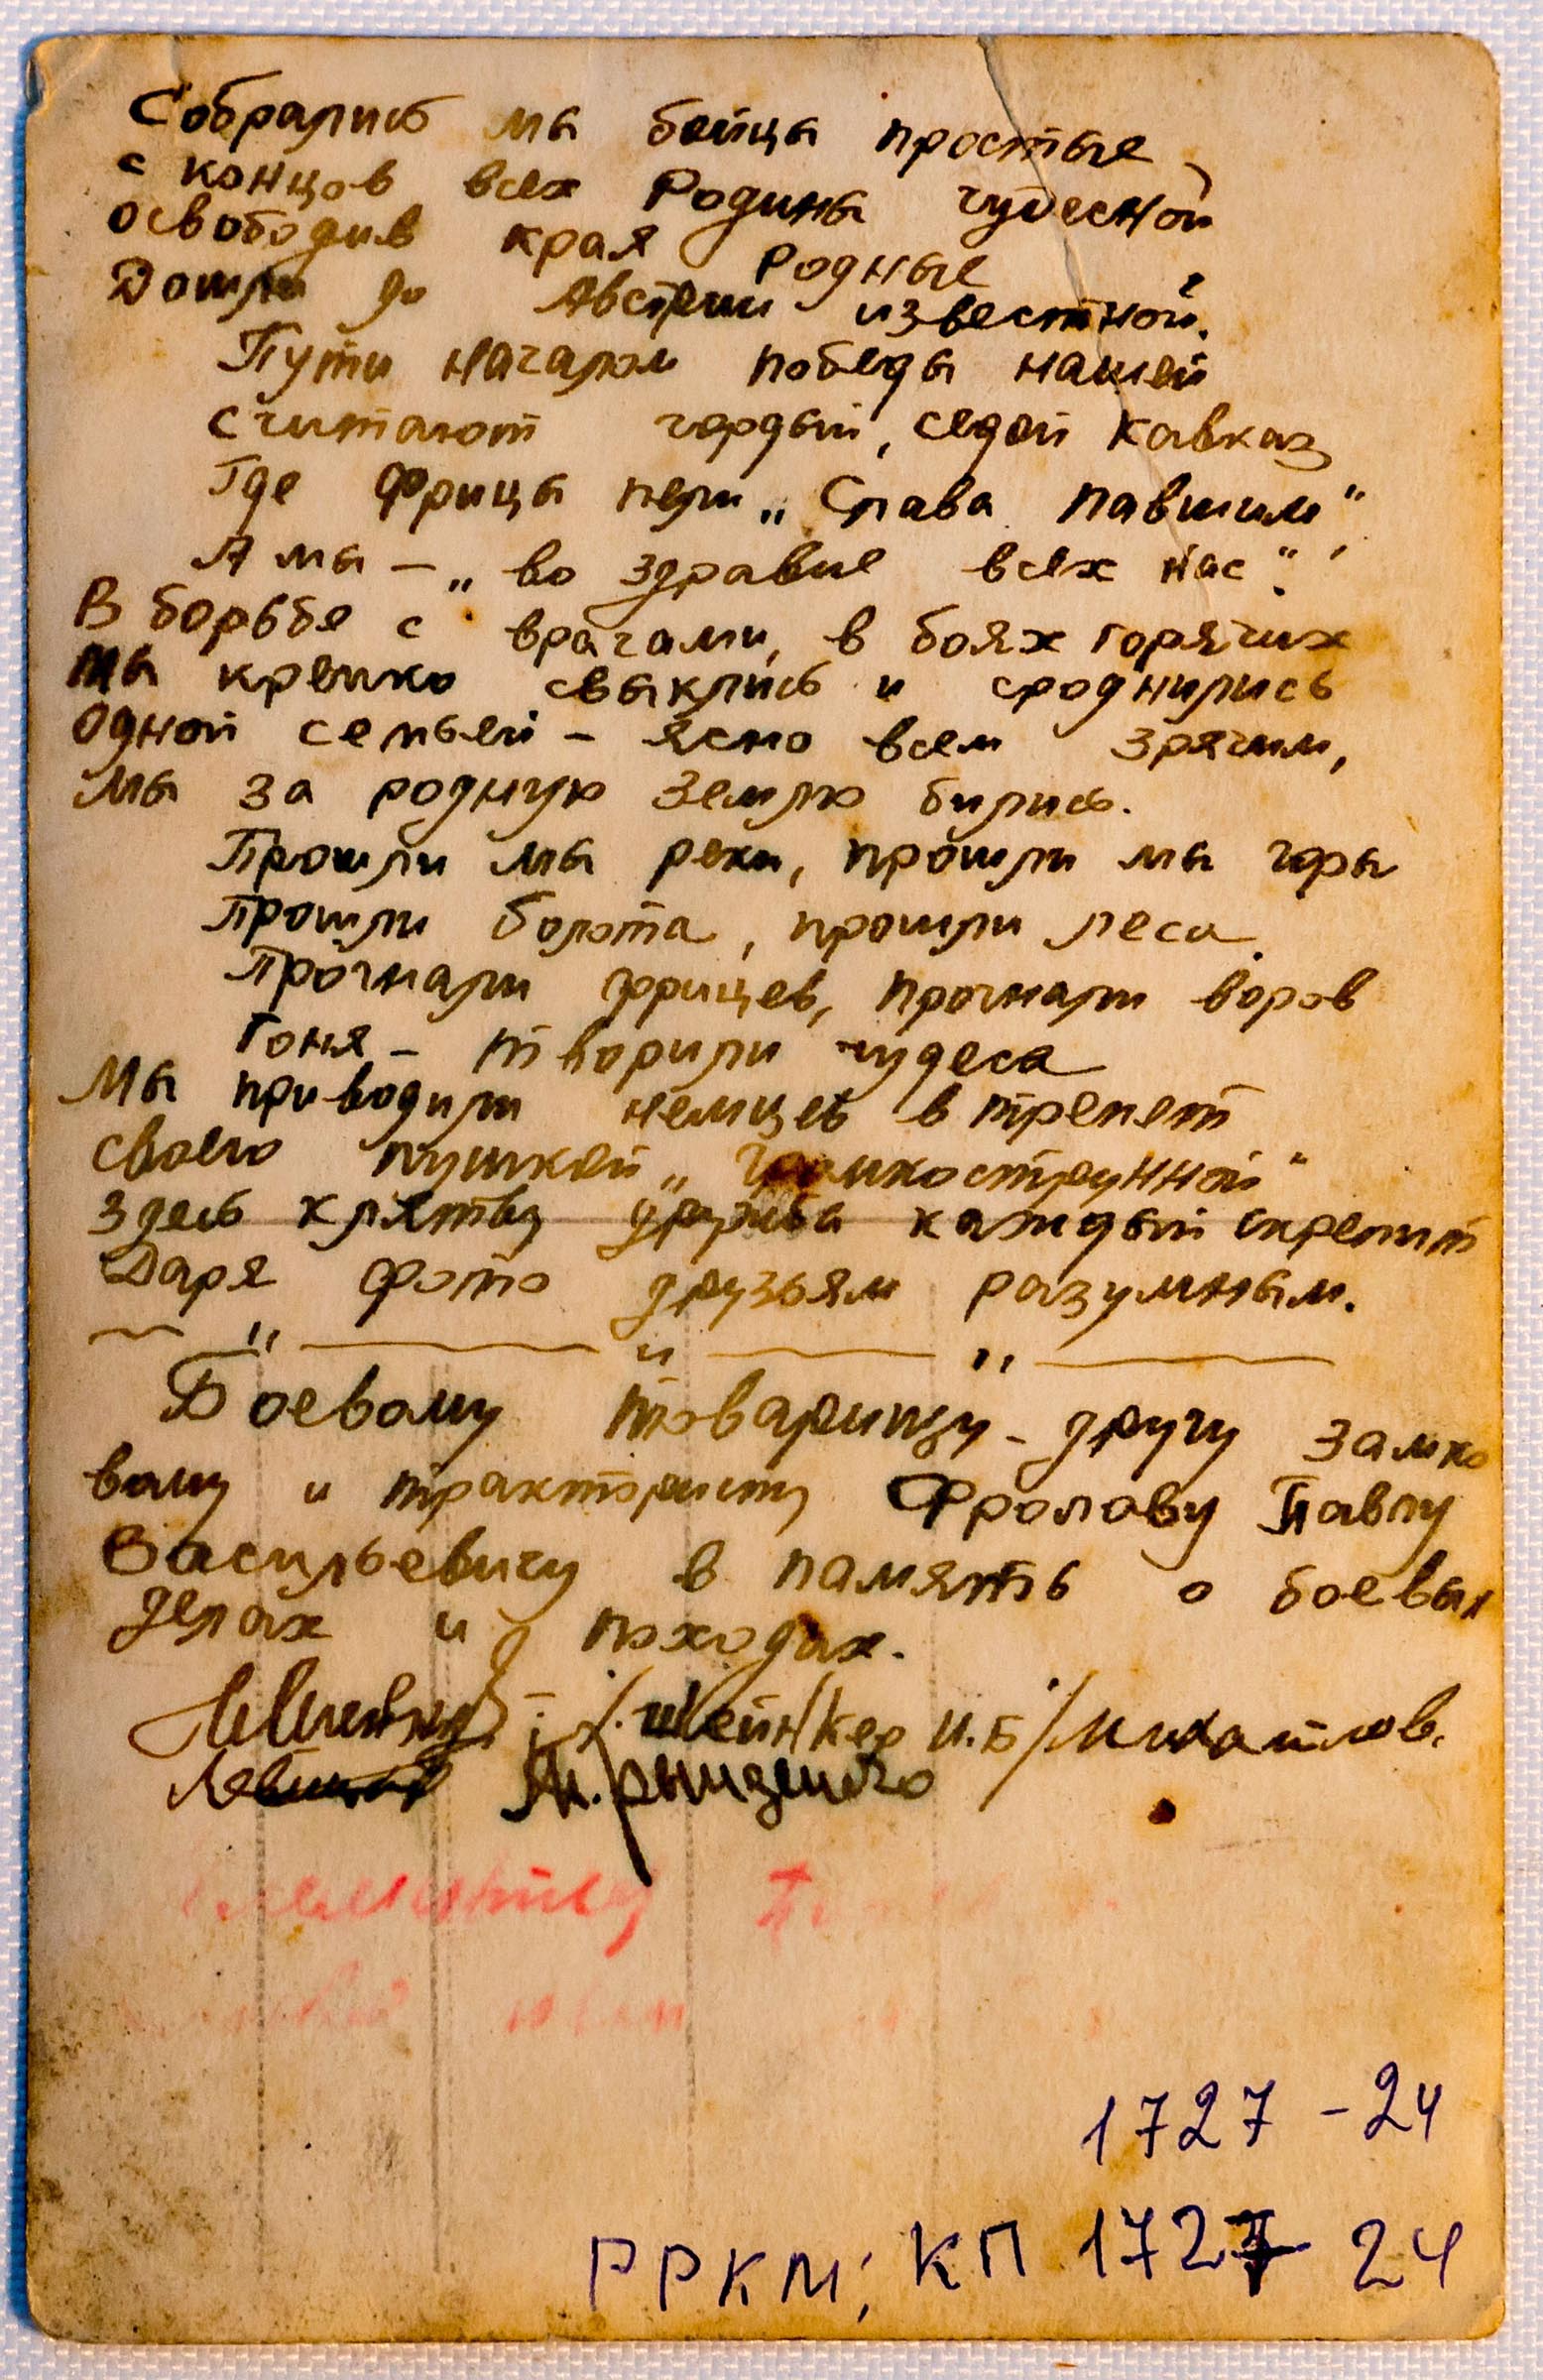 Собрались мы бойцы простые,
с концов всех Родины чудесной
освободив края родные
Дошли до Австрии известной.
Пути началом победы нашей
считают гордый, седой Кавказ
Где фрицы пели „Слава павшим",
А мы – „во здравие всех нас".
В борьбе с врагами, в боях горячих
мы крепко свыклись и сроднились
одной семьей – ясно всем зрячим,
мы за родную землю бились.
Прошли мы реки, прошли мы горы
прошли болота, прошли леса.
Прогнали фрицев, прогнали воров
Гоня – творили чудеса
Мы приводили немцев в трепет
своею пушкой „громкострунной"
здесь клятву дружбы каждый скрепит
Даря фото друзьям разумным.
— " — " — " —
Боевому товарищу – другу замко
вому и трактористу Фролову Павлу
Васильевичу в память о боевых
делах и походах.
/Шейнкер И.Б/ Михайлов.
1727 – 24
РРКМ; КП 1727 24